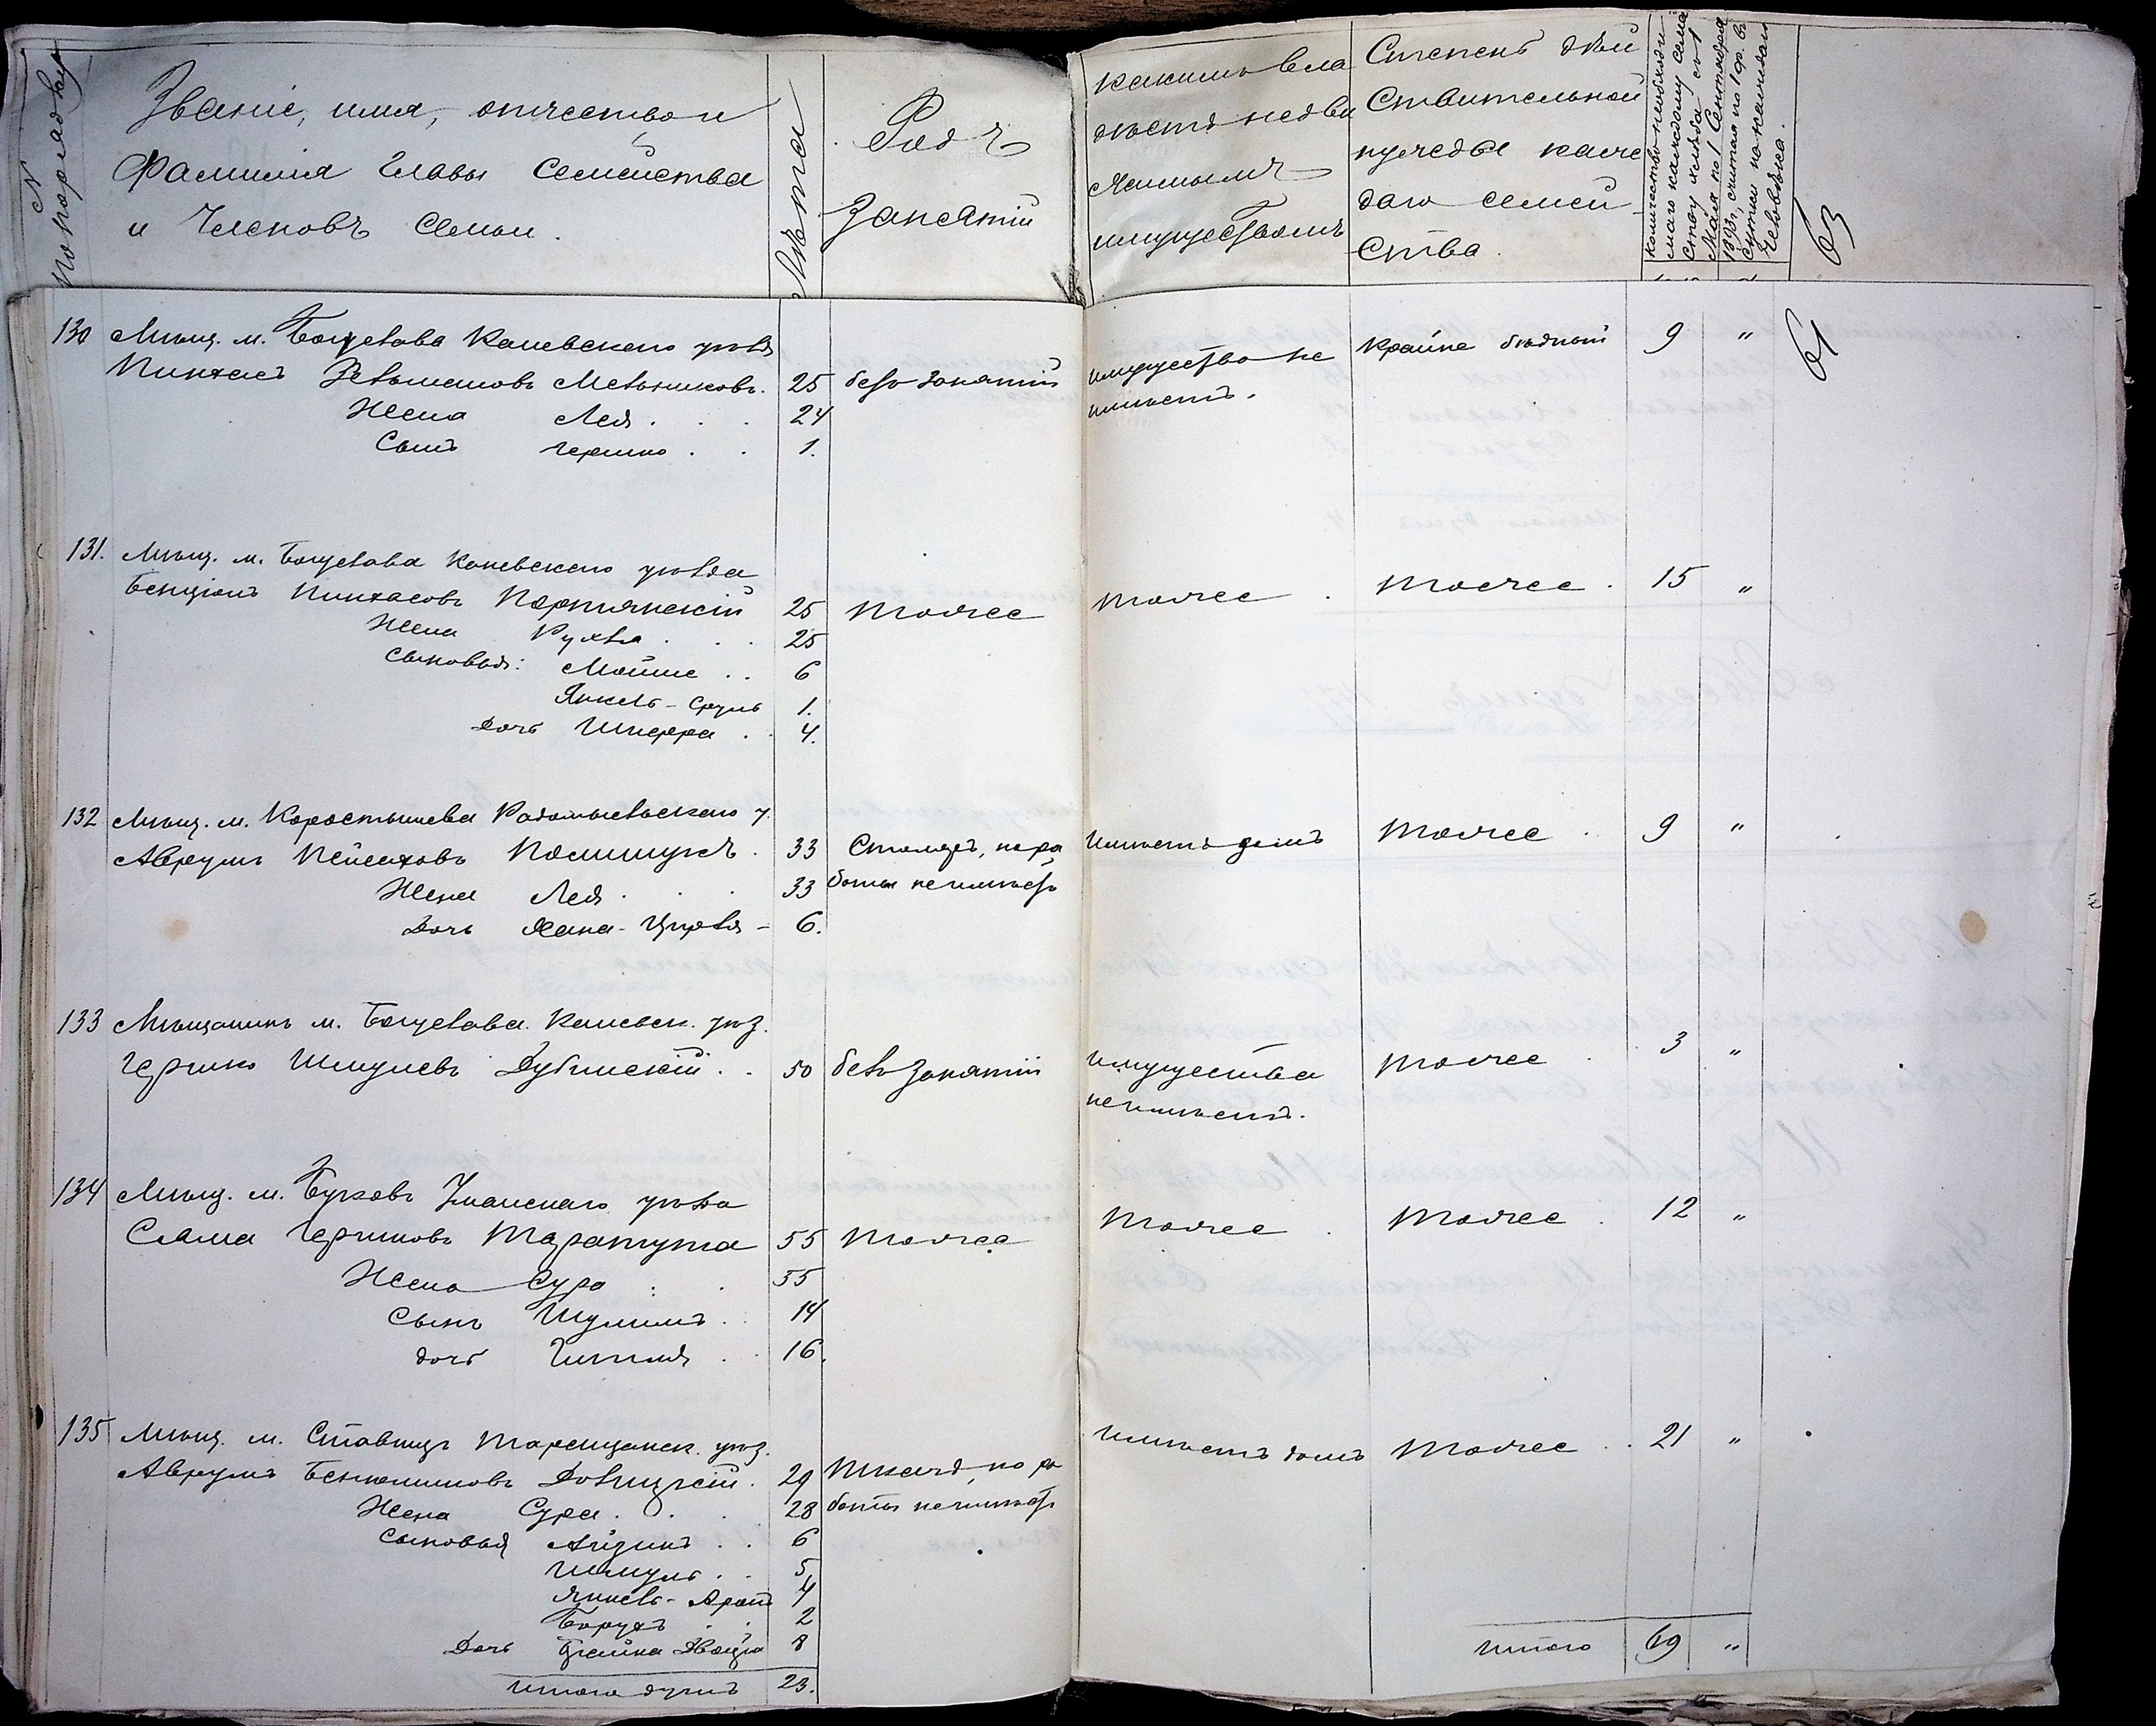 № по порядку
Званіе, имя, отчество и
фамилія главы семейства
и членовъ семьи.
Лѣта
Родъ
занятій
какимъ вла
дѣетъ недви
жимымъ
имуществомъ
Степень дѣй
ствительной
нужды каж
даго семей
ства.
Количество необходи
маго каждому семей
ству хлѣба съ 1
Мая по 1 Сентября
1893 г., считая по 1 ф. въ
сутки по каждаго
человѣка.
63
61
130 Мѣщ. м. Богуслава Каневскаго уѣзда
Пинхасъ Зельмановъ Мельниковъ. 25 безъ занятій имущество не крайне бѣдный 9 "
имѣетъ.
Жена Лея . . . 24
Сынъ Гершко . . 1.
131. Мѣщ. м. Богуслава Каневскаго уѣзда
Бенціонъ Пинхасовъ Портянскій 25 тоже тоже . тоже . 15 "
Жена Рухля . . . 25
Сыновья: Мойше . . 6
Янкель-Сруль 1.
Дочь Шифра . . 4.
132 Мѣщ. м. Коростышева Радомысльскаго у.
Аврумъ Пейсаховъ Полищукъ . 33 Столяръ, но ра имѣетъ домъ тоже . 9 "
боты не имѣетъ
Жена Лея . . . 33
Дочь Хана-Цирля - 6.
133 Мѣщанинъ м. Богуслава Каневск. уѣз.
Гершко Шмулевъ Дубинскій . . 50 безъ занятій имущества тоже . 3 "
не имѣетъ.
134 Мѣщ. м. Буковъ Уманскаго уѣзда
Слома Гершковъ Таратута 55 тоже тоже . тоже . 12 "
Жена Сура . . 55
Сынъ Шулимъ . . 14
дочь Гитля . . 16.
135 Мѣщ. м. Ставищъ Таращанск. уѣз.
Аврумъ Беньюминовъ Довицкій . 29 Ткачъ, но ра имѣетъ домъ тоже . . 21 "
боты не имѣетъ
Жена Сура . . . 28
Сыновья Айзикъ . . 6
Шмуль . . 5
Янкель-Аронъ 4
Борухъ . 2
Дочь Брайна Двойра 8
Итого душъ 23.
Итого 69 "